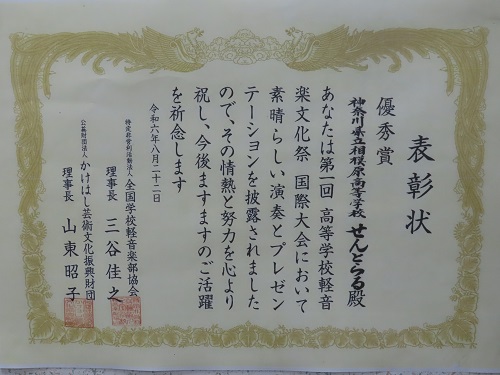 表彰状
優秀賞
神奈川県立相模原高等学校 せんとらる殿
あなたは第一回 高等学校軽音
楽文化祭 国際大会において
素晴らしい演奏とプレゼン
テーションを披露されました
ので、その情熱と努力を心より
祝し、今後ますますのご活躍
を祈念します
令和六年八月二十二日
特定非営利活動法人 全国学校軽音楽部協会
理事長 三谷佳之
公益財団法人 かけはし芸術文化振興財団
理事長 山東昭子